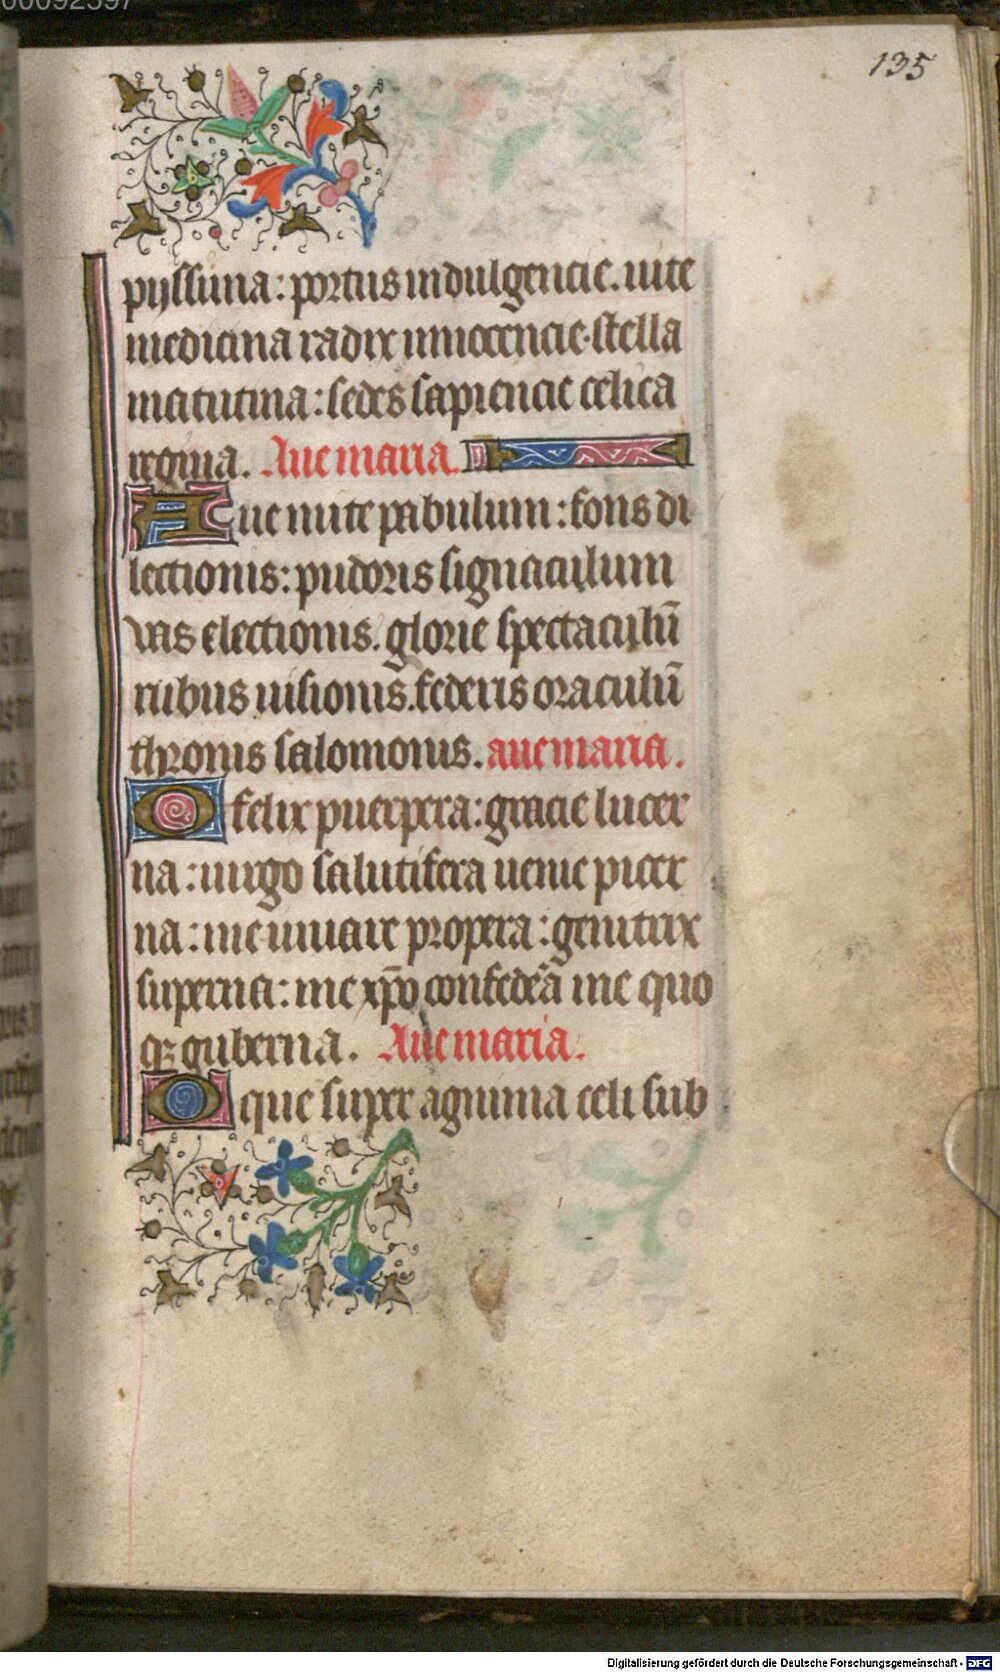 00092597
135
pijssima: portus indulgencie. uite
medicina radix innocencie. stella
matutina: sedes sapiencie celica
regina. Aue maria.
Aue mitte pabulum: fons di
lectionis: pudoris signaculum
vas electionis. glorie spectaculū
rubus uisionis. federis oraculū
thronis salomonis. aue maria.
O felix puerpera: gracie lucer
na: uirgo salutifera uenie picer
na: me iuuare propera: genitrix
superna: me xp̄o confedeā me quo
qꝫ guberna. Aue maria.
O que super agmina celi sub
Digitalisierung gefördert durch die Deutsche Forschungsgemeinschaft - DFG